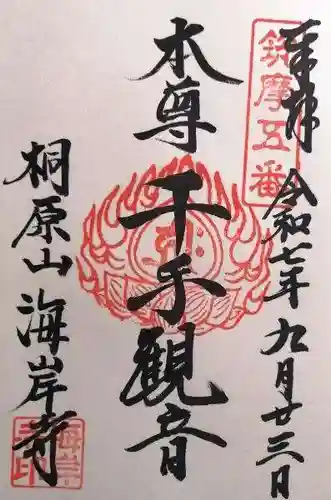 奉拝
令和七年九月廿三日
筑摩五番
本尊
千手観音
桐原山
海岸寺